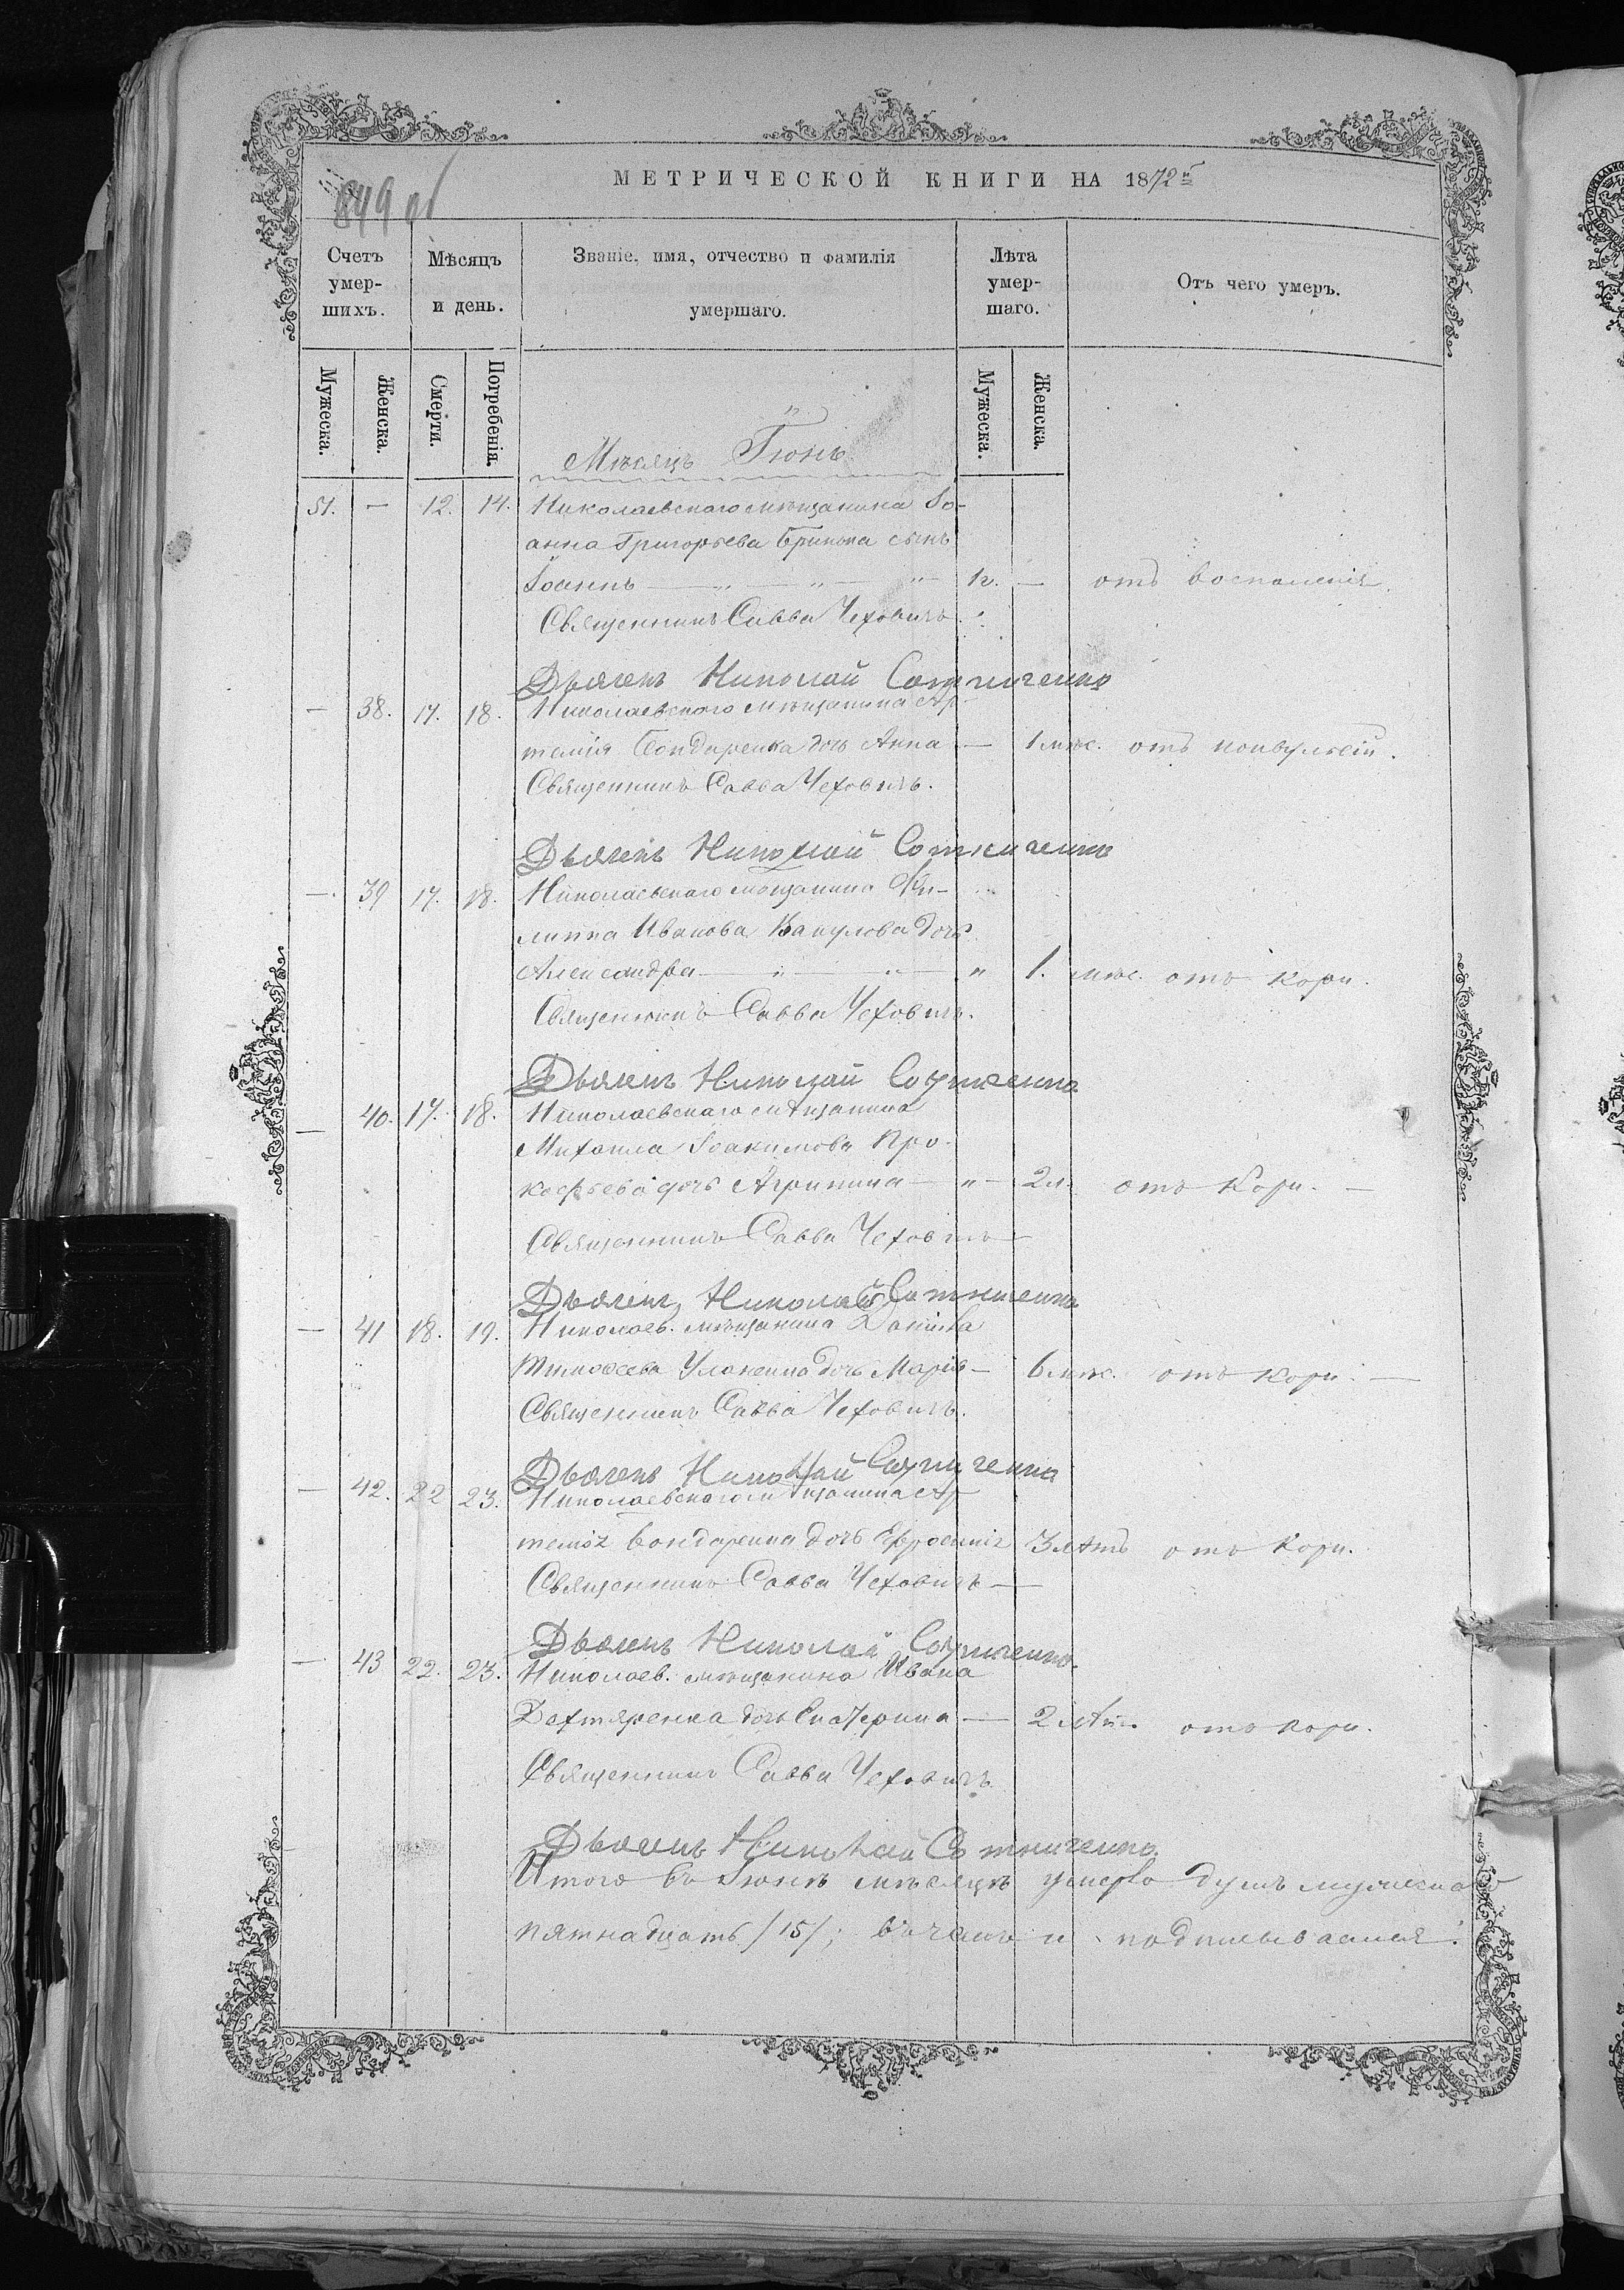 849 об
МЕТРИЧЕСКОЙ КНИГИ НА 1872й
Счетъ умер-шихъ.
Мѣсяцъ и день.
Званіе, имя, отчество и фамилія умершаго.
Лѣта умер-шаго.
Отъ чего умеръ.
Мужеска.
Женска.
Смерти.
Погребенія.
Мужеска.
Женска.
Мѣсяцъ Іюнь
51. — 12. 14. Николаевскаго мѣщанина Іо-
анна Григорьева сынъ
Іоаннъ — отъ воспаленія.
Священникъ Савва Чеховичъ.
Дьячекъ Николай Сотниченко
— 38. 17. 18. Николаевскаго мѣщанина Ар-
темія Бондаренка дочь Анна — 1 мѣс. отъ конвульсій.
Священникъ Савва Чеховичъ.
Дьячекъ Николай Сотниченко
— 39 17. 18. Николаевскаго мѣщанина Фи-
липпа Иванова дочь
Александра — " 1. мѣс. отъ кори.
Священникъ Савва Чеховичъ.
Дьячекъ Николай Сотниченко
— 40. 17. 18. Николаевскаго мѣщанина
Михаила Іоакимова Про-
кофьева дочь Агрипина — " — 2 л. отъ кори. —
Священникъ Савва Чеховичъ —
Дьячекъ Николай Сотниченко
— 41 18. 19. Николаев. мѣщанина Даніила
Тимоѳеева дочь Марія — 6 мѣс. отъ кори. —
Священникъ Савва Чеховичъ.
Дьячекъ Николай Сотниченко
— 42. 22 23. Николаевскаго мѣщанина Ар-
темія Бондаренка дочь Ефросинія 3 лѣтъ отъ кори.
Священникъ Савва Чеховичъ —
Дьячекъ Николай Сотниченко
— 43 22. 23. Николаев. мѣщанина Ивана
Дехтяренка дочь Екатерина — 2 лѣтъ отъ кори.
Священникъ Савва Чеховичъ
Дьячекъ Николай Сотниченко
Итого въ Іюнѣ мѣсяцѣ умерло душъ мужескаго
пятнадцать /15/; въ чемъ и подписываемся: